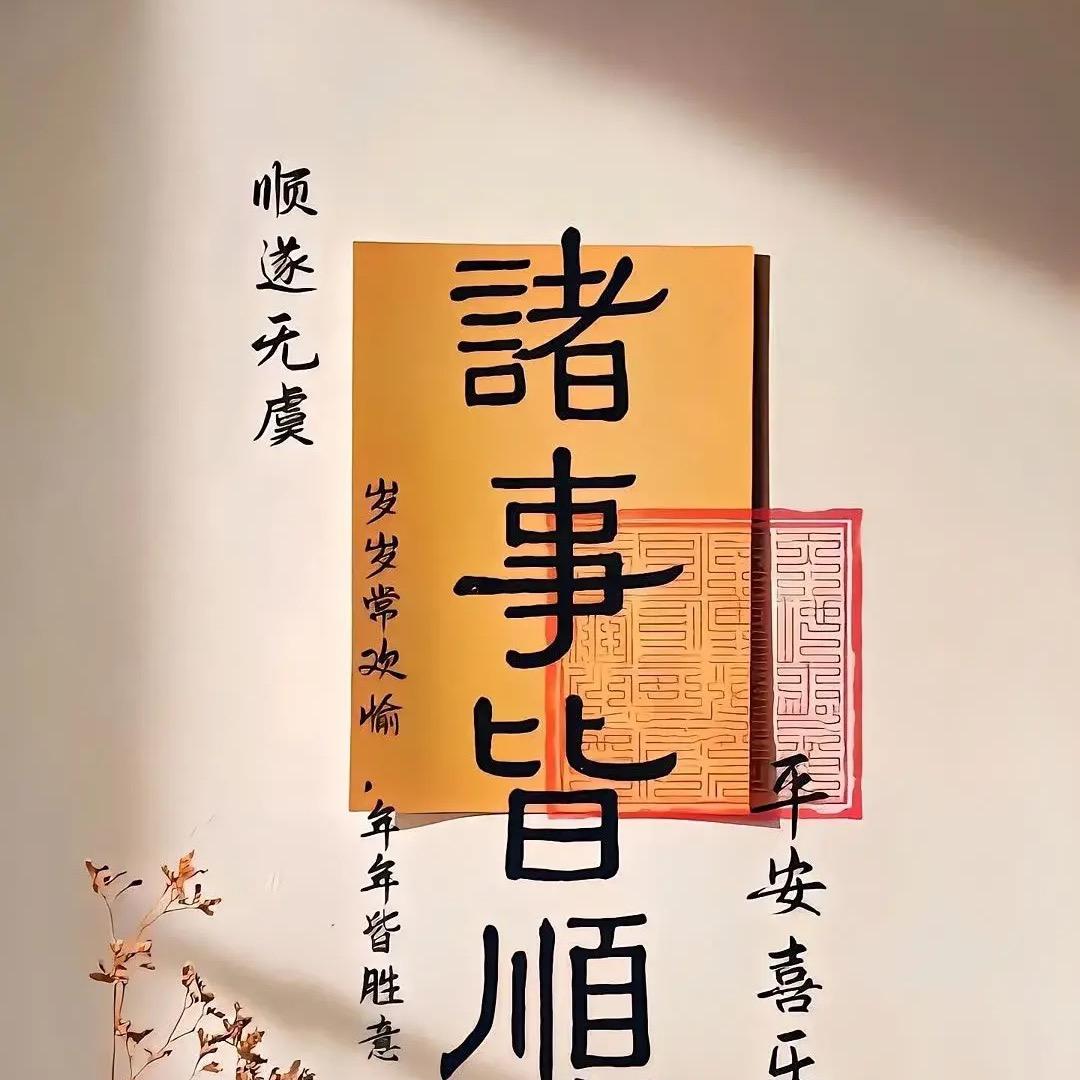 諸事皆順
顺遂无虞
岁岁常欢愉
·年年皆胜意
平安喜乐